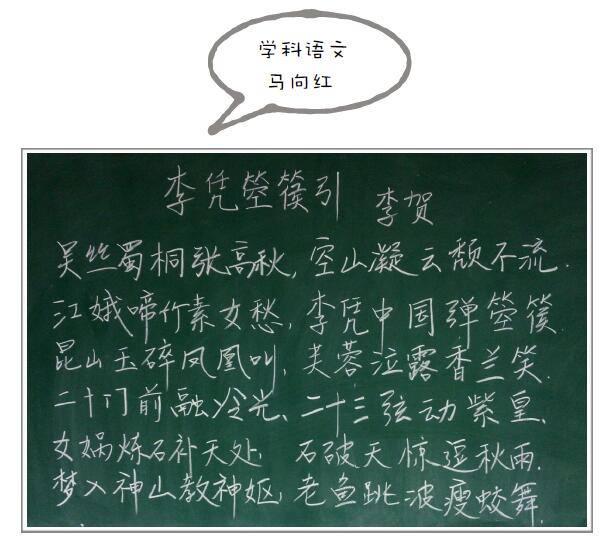 学科语文
马向红
李凭箜篌引 李贺
吴丝蜀桐张高秋,空山凝云颓不流.
江娥啼竹素女愁,李凭中国弹箜篌.
昆山玉碎凤凰叫,芙蓉泣露香兰笑.
二十门前融冷光、二十三弦动紫皇.
女娲炼石补天处,石破天惊逗秋雨.
梦入神山教神妪,老鱼跳波瘦蛟舞.